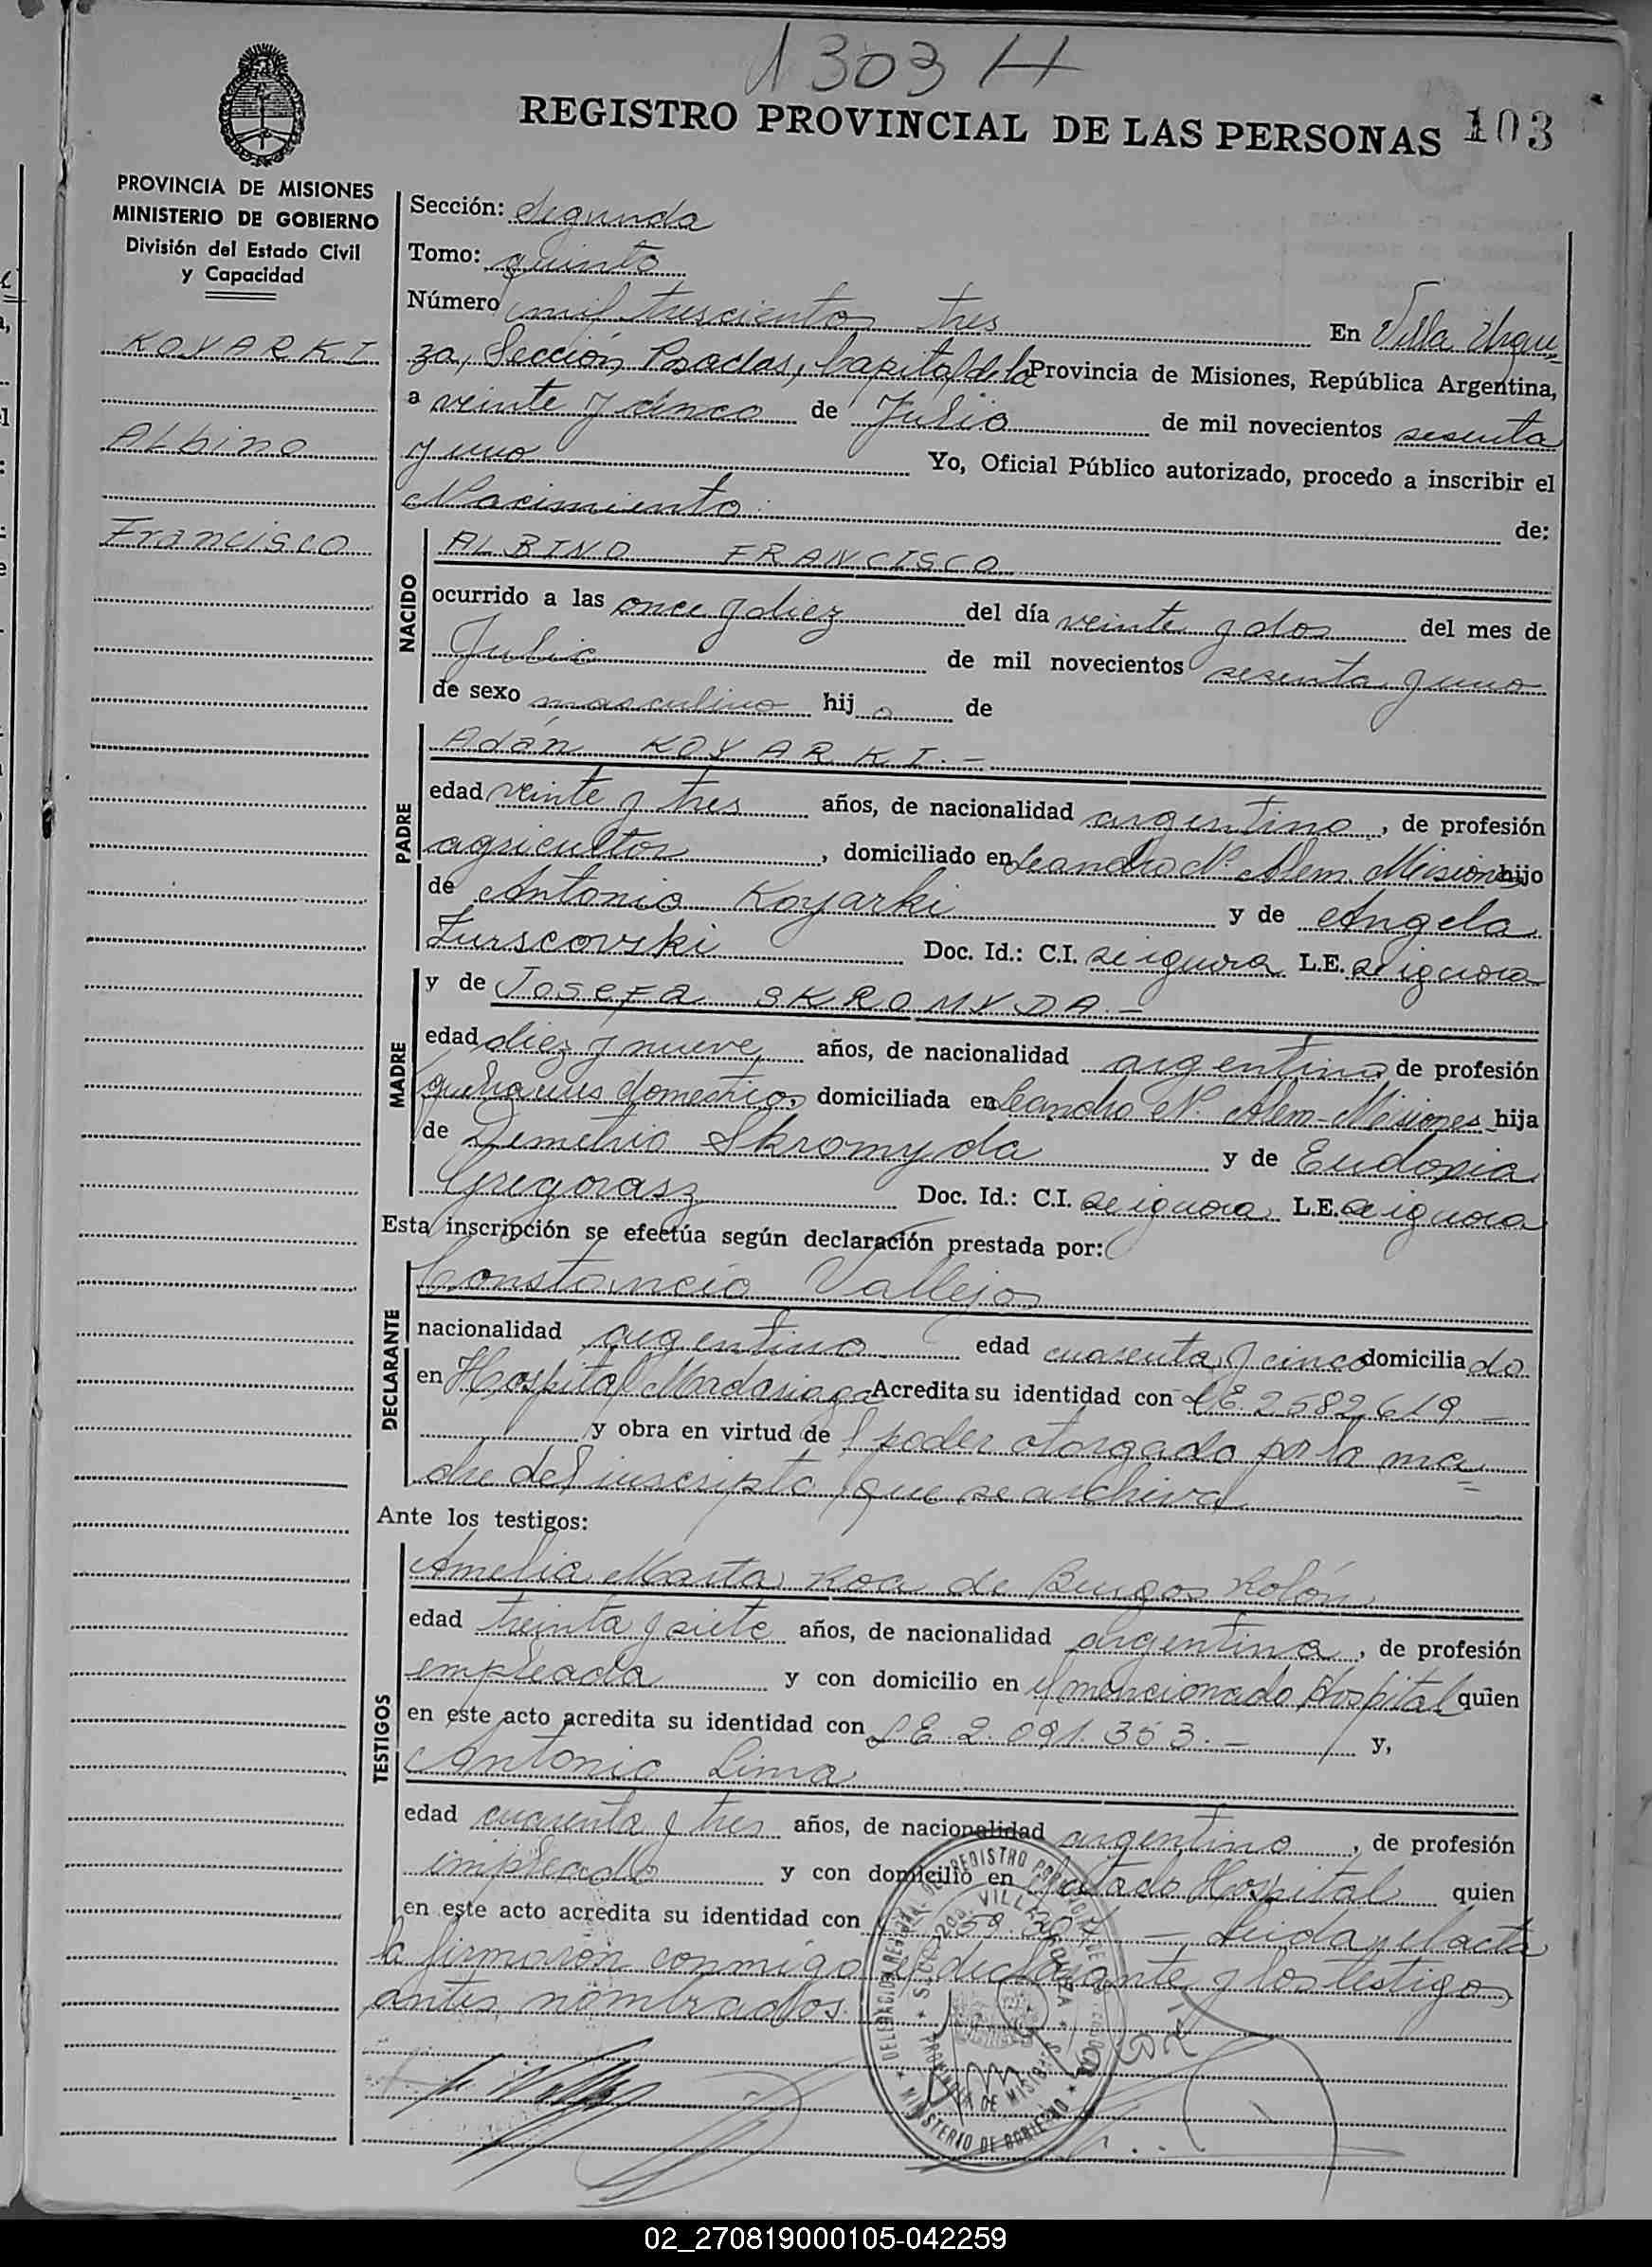 1303 H
REGISTRO PROVINCIAL DE LAS PERSONAS 103
PROVINCIA DE MISIONES
MINISTERIO DE GOBIERNO
División del Estado Civil
y Capacidad
KOYARKI
Albino
Francisco
Sección: Segunda
Tomo: quinto
Número mil trescientos tres En Villa Urqui-
za, Sección Posadas, Capital de la Provincia de Misiones, República Argentina,
a veinte y cinco de Julio de mil novecientos sesenta
y uno Yo, Oficial Público autorizado, procedo a inscribir el
Nacimiento de:
NACIDO
ALBINO FRANCISCO
ocurrido a las once y diez del día veinte y dos del mes de
Julio de mil novecientos sesenta y uno
de sexo masculino hijo de
PADRE
Adán KOYARKI.-
edad veinte y tres años, de nacionalidad argentino, de profesión
agricultor, domiciliado en Leandro N. Alem. Misiones hijo
de Antonio Koyarki y de Angela
Zurscovski Doc. Id.: C.I. se ignora L.E. se ignora
MADRE
y de Josefa SKROMYDA.-
edad diez y nueve años, de nacionalidad argentina de profesión
quehaceres domesticos, domiciliada en Leandro N. Alem-Misiones hija
de Demetrio Skromyda y de Eudosia
Gregorasz Doc. Id.: C.I. se ignora L.E. se ignora
Esta inscripción se efectúa según declaración prestada por:
DECLARANTE
Constancio Vallejos
nacionalidad argentino edad cuarenta y cinco domiciliado
en Hospital Madariaga Acredita su identidad con L.E. 2582619-
y obra en virtud de l poder otorgado por la ma-
dre del inscripto que se archiva
Ante los testigos:
TESTIGOS
Amelia Marta Roa de Burgos Rolón
edad treinta y siete años, de nacionalidad argentina, de profesión
empleada y con domicilio en el mencionado Hospital quien
en este acto acredita su identidad con L E. 2.091.353.- y,
Antonio Lima
edad cuarenta y tres años, de nacionalidad argentino, de profesión
empleado y con domicilio en citado Hospital quien
en este acto acredita su identidad con Leida el acta
la firmaron conmigo el declarante y los testigos
antes nombrados.
REGISTRO
VILLA URQUIZA
PROVINCIA DE MISIONES
MINISTERIO DE GOBIERNO
02_270819000105-042259